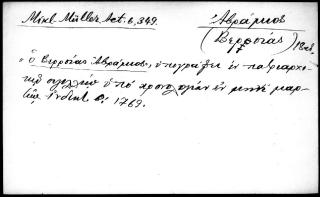 Mikl. Müller Act. 6, 349.
Ἀβράμιος
(Βερροίας)
"ὁ Βερροίας Ἀβράμιος", ὑπογράφει ἐν πατριαρχι
κῷ σιγιλλίῳ ὑπὸ χρονολογίαν ἐν μηνὶ μαρ
τίῳ Ἰνδικτ. 1769.